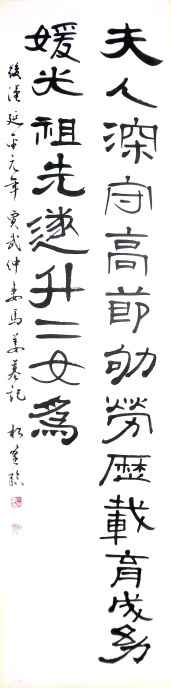 夫人深守高節劬勞歷載育成幼
媛光祖先遂升二女爲
後漢延平元年賈武仲妻馬姜墓記 臨